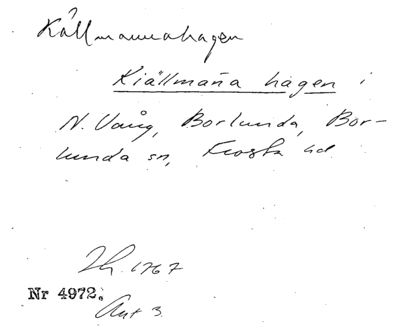 Källmannahagen
Kiällmaña hagen i
N. Vång, Borlunda, Bor-
lunda sn, Frosta hd
Lh. 1767
Nr 4972.
Akt 3.